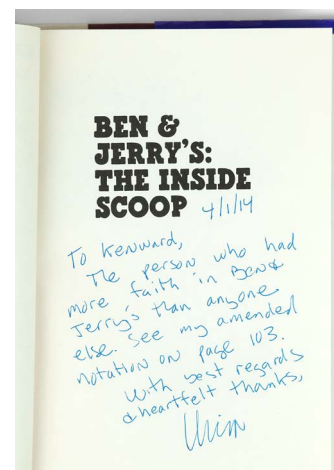 BEN &
JERRY'S:
THE INSIDE
SCOOP 4/1/14
To Kenward,
The person who had
more faith in Ben &
Jerry's than anyone
else. See my amended
notation on page 103.
With best regards
& heartfelt thanks,